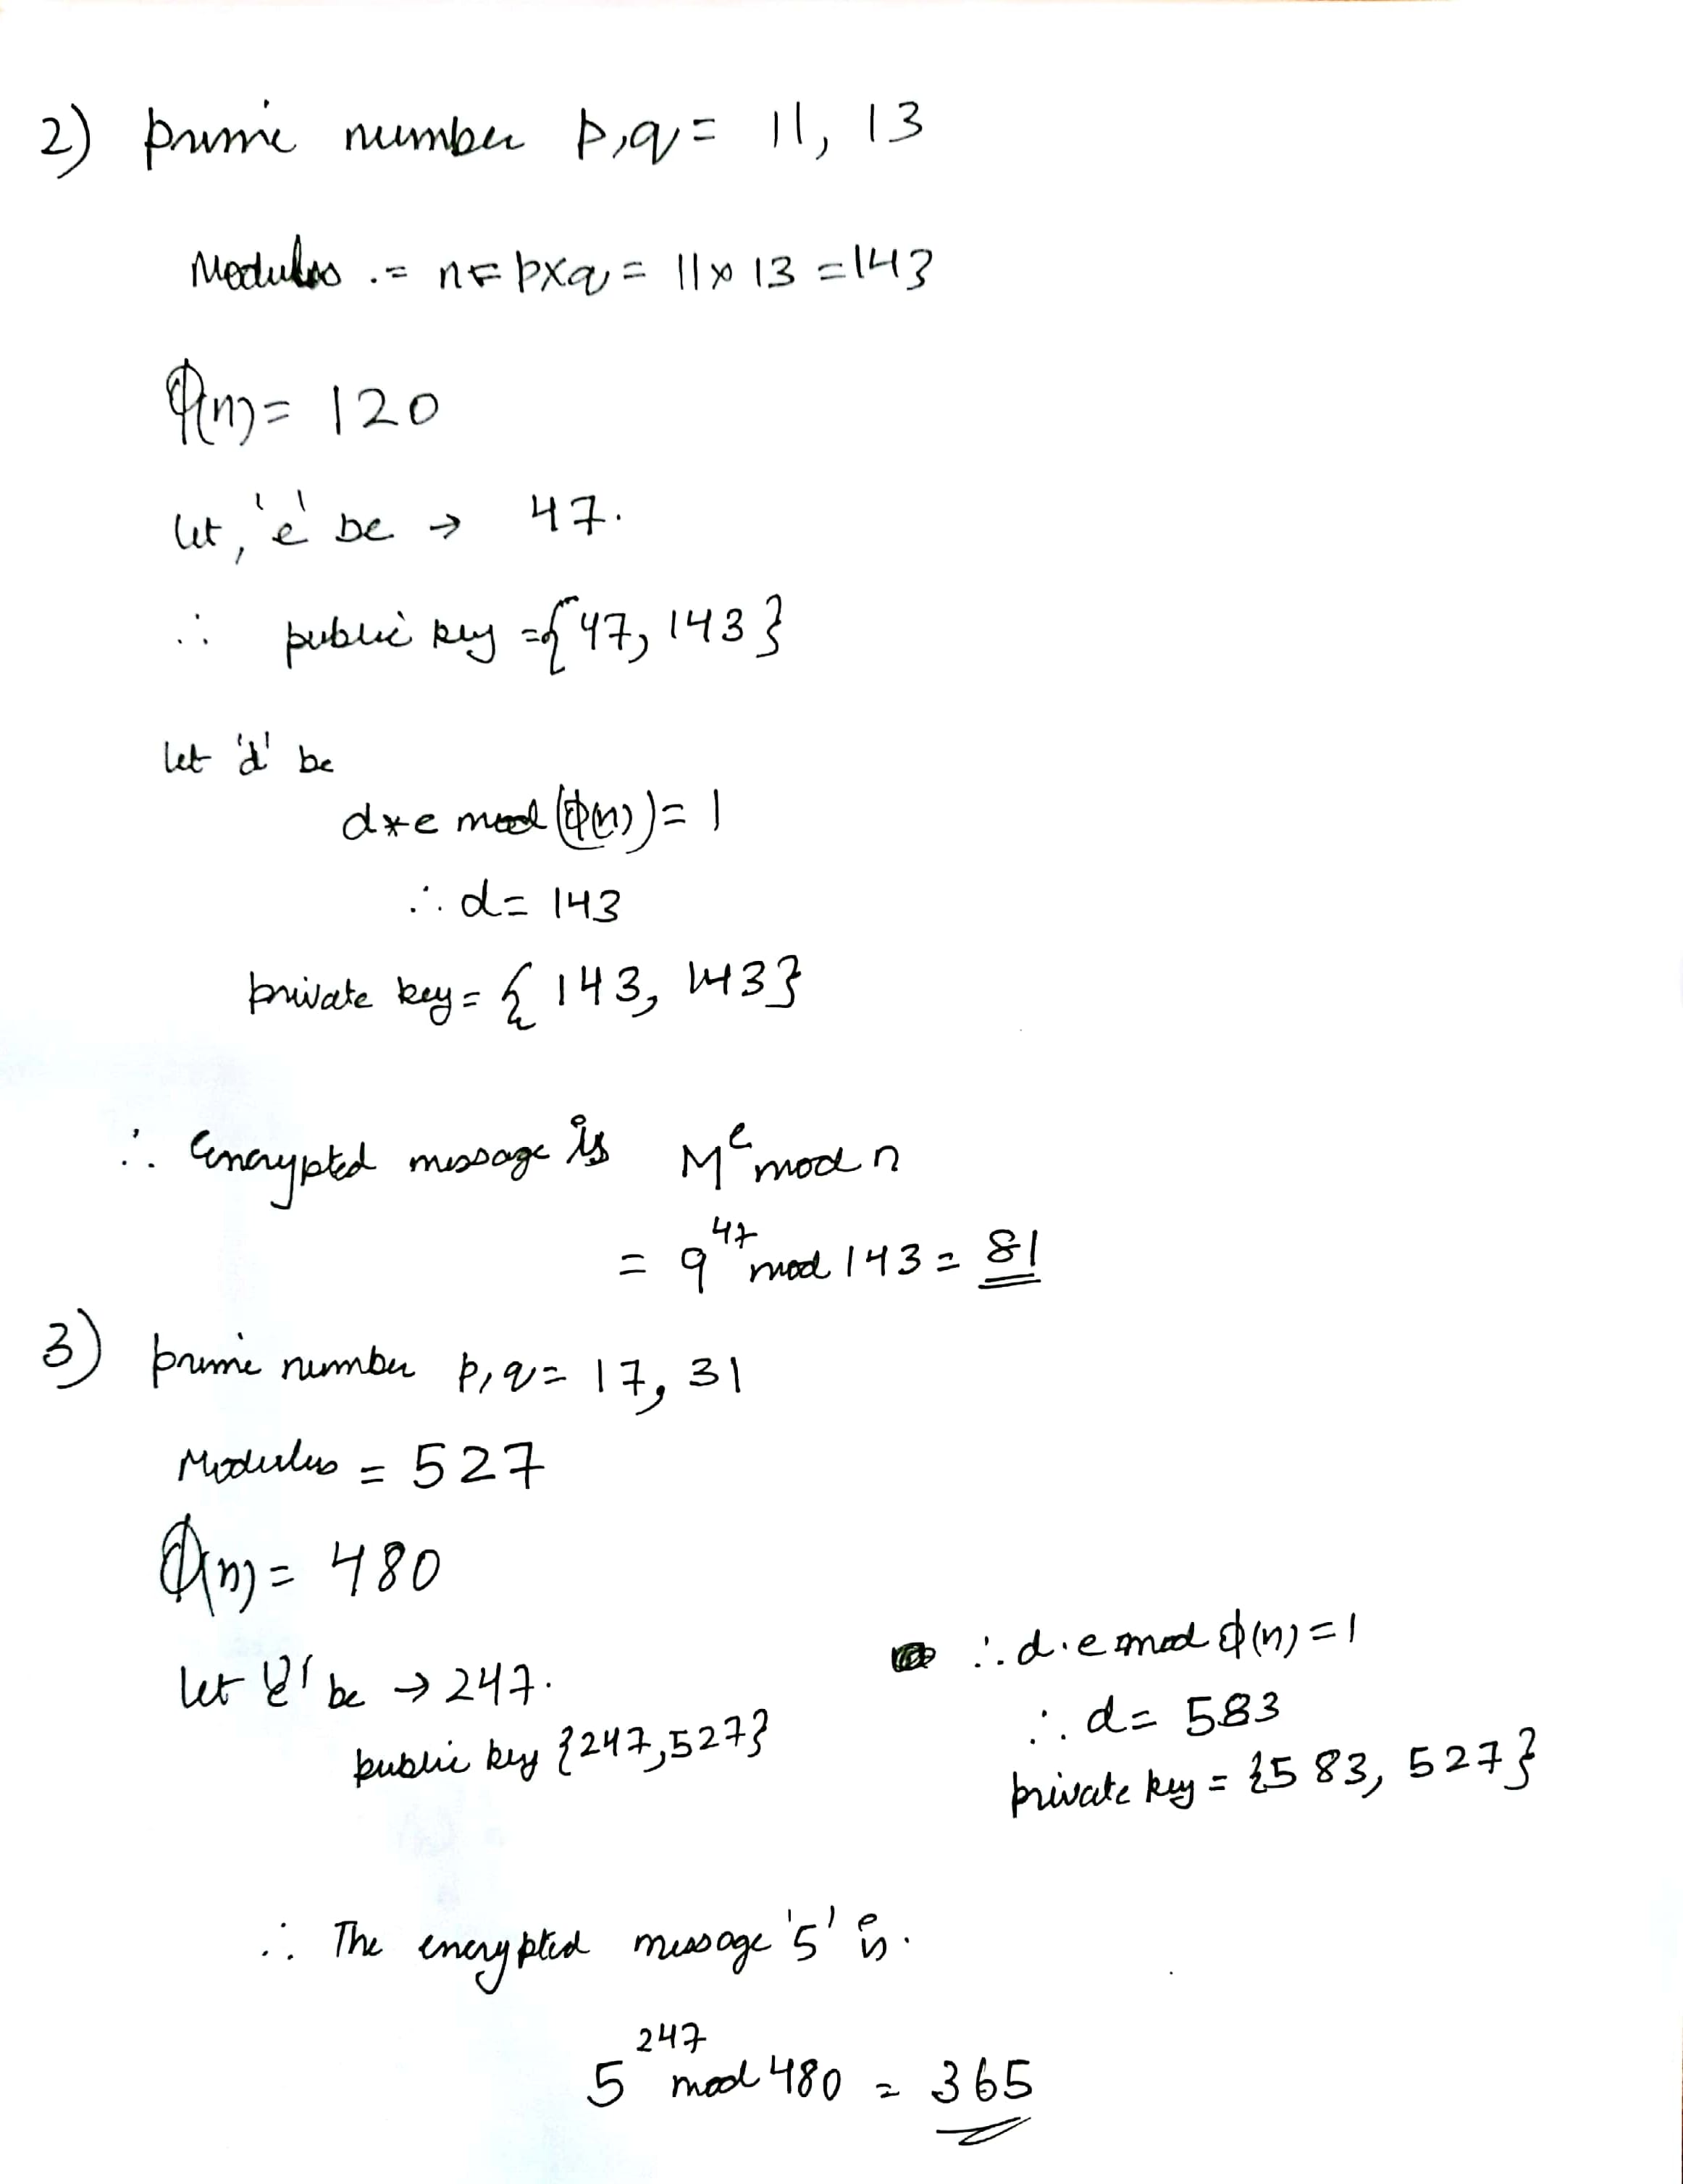 2) prime number p,q = 11, 13
Modulus .= n = p×q = 11 × 13 = 143
ϕ(n) = 120
let, 'e' be → 47.
∴ public key = {47, 143}
let 'd' be
d*e mod (ϕ(n)) = 1
∴ d = 143
private key = { 143, 143}
∴ Encrypted message is M^e mod n
= 9^47 mod 143 = 81
3) prime number p, q = 17, 31
Modulus = 527
ϕ(n) = 480
let 'e' be → 247.
public key {247, 527}
∴ d.e mod ϕ(n) = 1
∴ d = 583
private key = {583, 527}
∴ The encrypted message '5' is.
5^247 mod 480 = 365